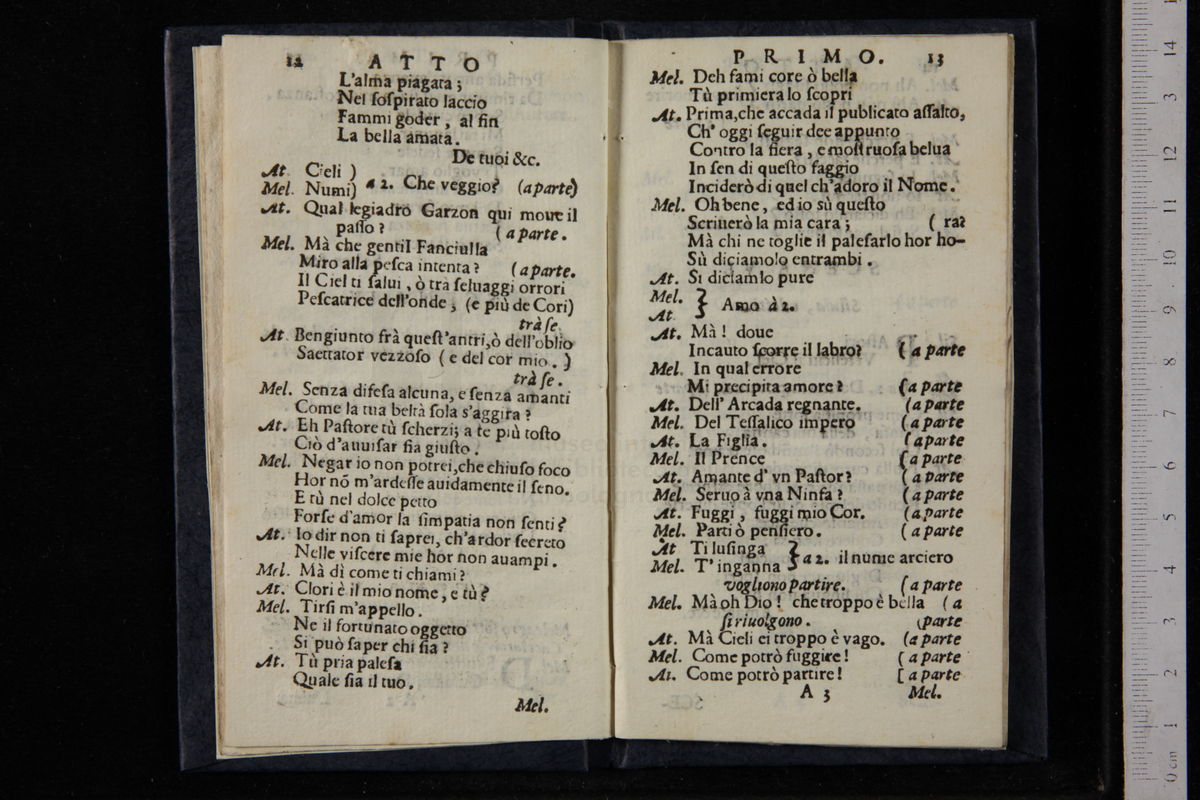 12 ATTO
L'alma piagata ;
Nel ſoſpirato laccio
Fammi goder , al fin
La bella amata .
De tuoi &c.
At Cieli )
Mel. Numi) a 2. Che veggio? (a parte)
At. Qual legiadro Garzon qui moue il
paſſo ? ( a parte .
Mel. Mà che gentil Fanciulla
Miro alla peſca intenta ? (a parte.
Il Ciel ti ſalui , ò trà ſeluaggi orrori
Peſcatrice dell'onde , (e più de Cori)
trà ſe.
At. Bengiunto frà queſt'antri,ò dell'oblio
Saettator vezzoſo ( e del cor mio . )
trà ſe .
Mel. Senza difeſa alcuna, e ſenza amanti
Come la tua beltà ſola s'aggira ?
At. Eh Paſtore tù ſcherzi; a te più toſto
Ciò d'auuiſar ſia giuſto .
Mel. Negar io non potrei,che chiuſo foco
Hor nõ m'ardeſſe auidamente il ſeno.
E tù nel dolce petto
Forſe d'amor la ſimpatia non ſenti?
At. Io dir non ti ſaprei, ch'ardor ſecreto
Nelle viſcere mie hor non auampi .
Mel. Mà dì come ti chiami ?
At. Clori è il mio nome, e tù ?
Mel. Tirſi m'appello .
Ne il fortunato oggetto
Si può ſaper chi ſia ?
At. Tù pria paleſa
Quale ſia il tuo .
Mel.
PRIMO. 13
Mel. Deh fami core ò bella
Tù primiera lo ſcopri
At. Prima,che accada il publicato aſſalto,
Ch' oggi ſeguir dee appunto
Contro la fiera , e moſtruoſa belua
In ſen di queſto faggio
Inciderò di quel ch'adoro il Nome .
Mel. Oh bene , ed io sù queſto
Scriuerò la mia cara ; ( ra?
Mà chi ne toglie il paleſarlo hor ho-
Sù diciamolo entrambi .
At. Si diciamlo pure
Mel.
At } Amo à 2.
At. Mà ! doue
Incauto ſcorre il labro? ( a parte
Mel. In qual errore
Mi precipita amore ? (a parte
At. Dell' Arcada regnante. (a parte
Mel. Del Teſſalico impero (a parte
At. La Figlia . (a parte
Mel. Il Prence (a parte
At. Amante d' vn Paſtor ? (a parte
Mel. Seruo à vna Ninfa ? (a parte
At. Fuggi , fuggi mio Cor. (a parte
Mel. Parti ò penſiero . (a parte
At Ti luſinga
Mel. T' inganna } a 2. il nume arciero
vogliono partire. (a parte
Mel. Mà oh Dio ! che troppo è bella ( a
ſi riuolgono . (parte
At. Mà Cieli ei troppo è vago. (a parte
Mel. Come potrò fuggire ! ( a parte
At. Come potrò partire ! [ a parte
A 3 Mel.